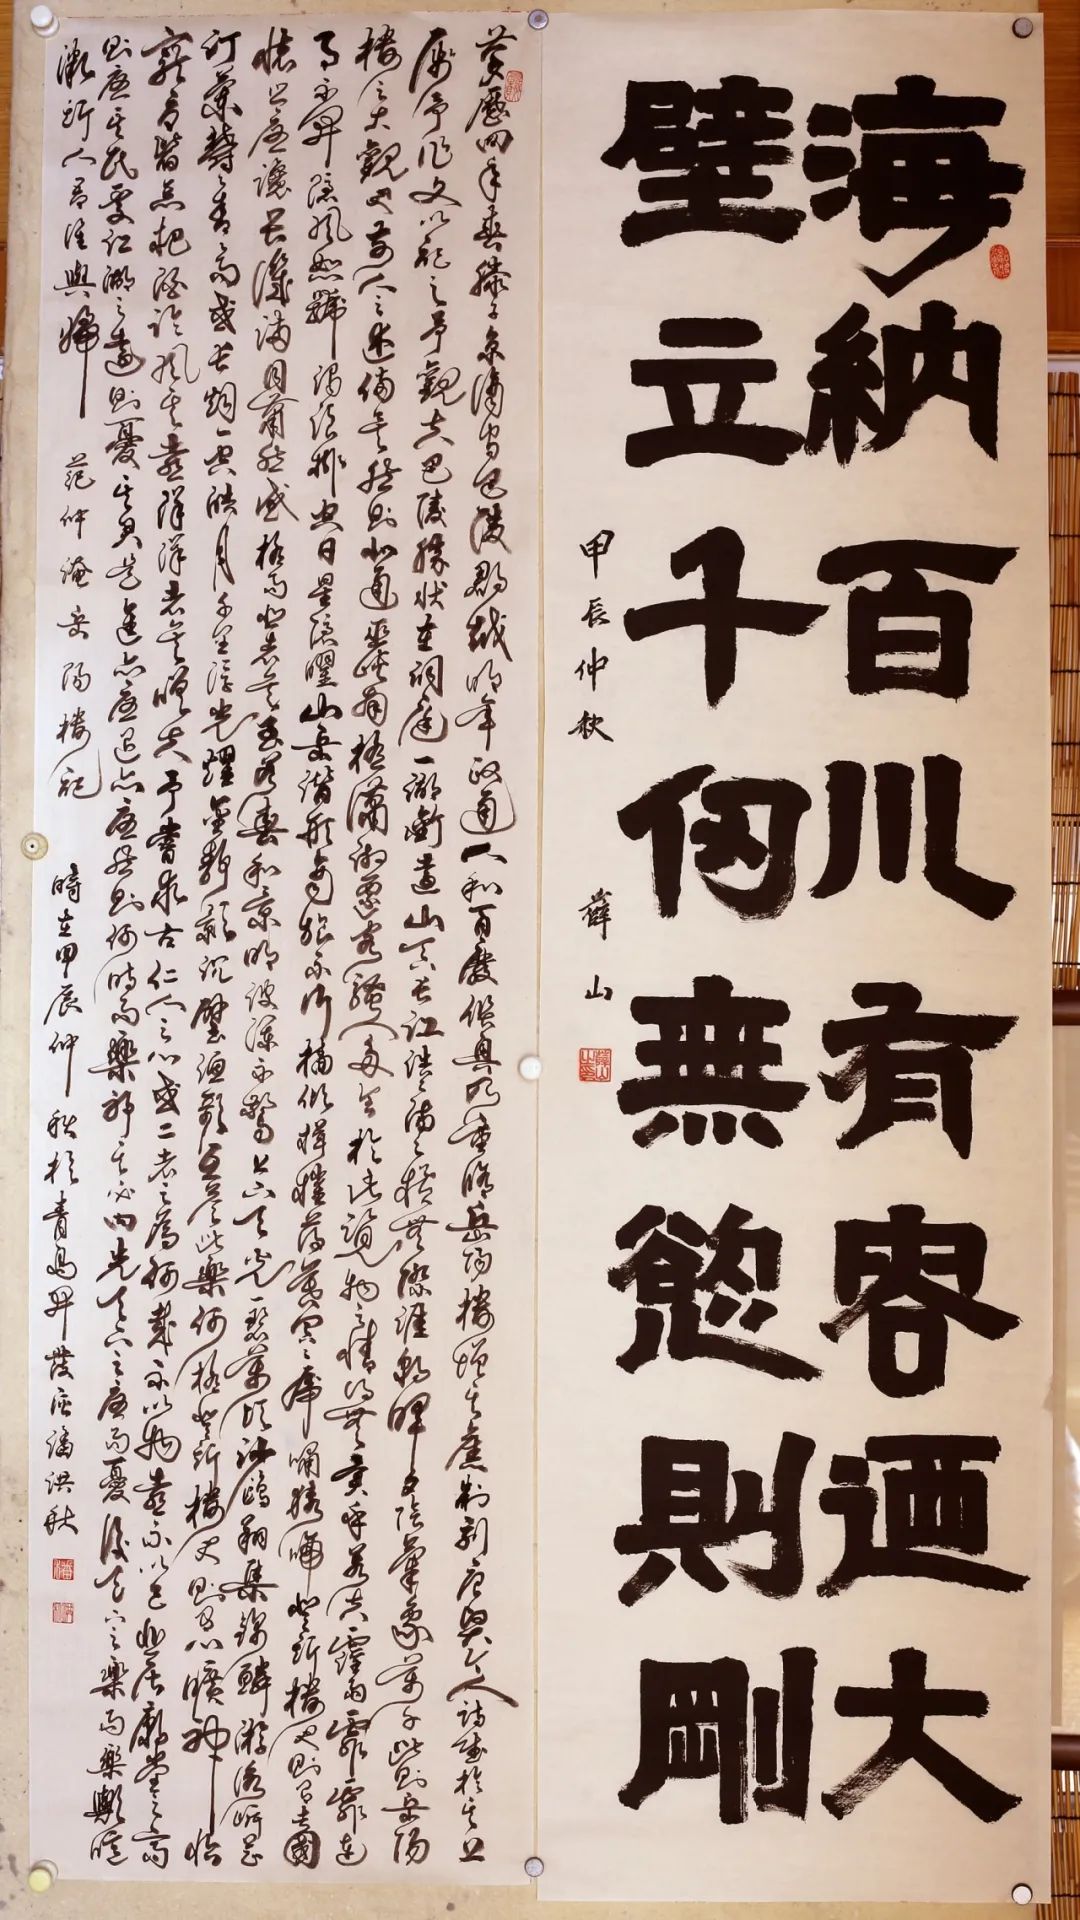 海納百川有容迺大
壁立千仞無慾則剛
甲辰仲秋 薛山
薛山之印
慶曆四年春滕子京謫守巴陵郡越明年政通人和百廢俱興乃重脩岳陽樓增其舊制刻唐賢今人詩賦於其上
屬予作文以記之予觀夫巴陵勝狀在洞庭一湖銜遠山吞長江浩浩湯湯橫無際涯朝暉夕陰氣象萬千此則岳陽
樓之大觀也前人之述備矣然則北通巫峽南極瀟湘遷客騷人多會於此覽物之情得無異乎若夫霪雨霏霏連
月不開陰風怒號濁浪排空日星隱曜山岳潛形商旅不行檣傾楫摧薄暮冥冥虎嘯猿啼登斯樓也則有去國
懷鄉憂讒畏譏滿目蕭然感極而悲者矣至若春和景明波瀾不驚上下天光一碧萬頃沙鷗翔集錦鱗游泳岸芷
汀蘭鬱鬱青青而或長煙一空皓月千里浮光耀金靜影沉璧漁歌互答此樂何極登斯樓也則有心曠神怡
寵辱皆忘把酒臨風其喜洋洋者矣嗟夫予嘗求古仁人之心或二者之為何哉不以物喜不以己悲居廟堂之高
則憂其民處江湖之遠則憂其君是進亦憂退亦憂然則何時而樂耶其必曰先天下之憂而憂後天下之樂而樂歟噫
微斯人吾誰與歸 范仲淹岳陽樓記 時在甲辰仲秋於青島開發區潘洪秋